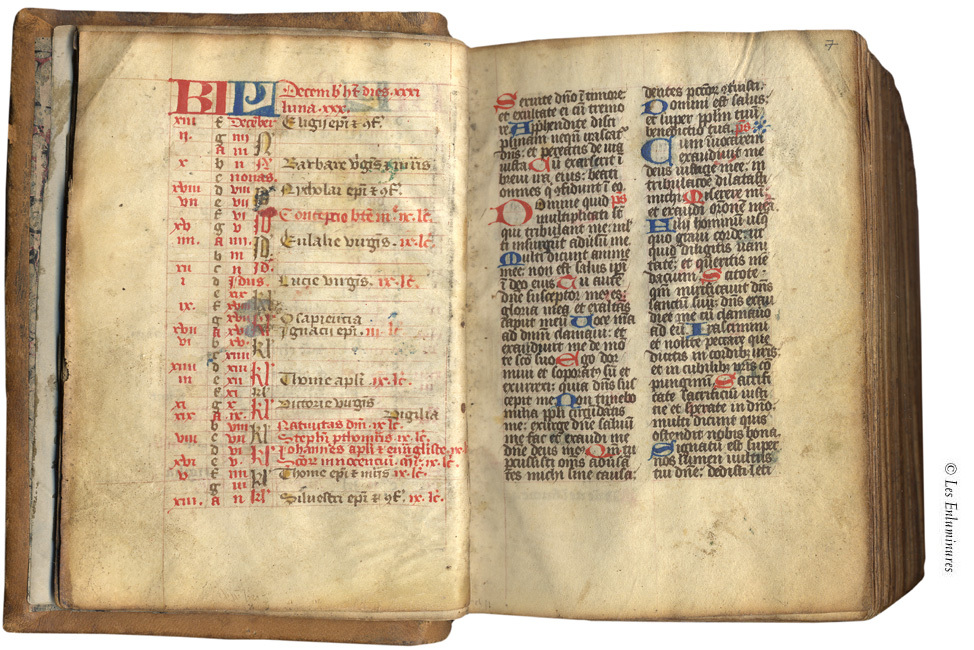 KL Decemb' ht dies xxxi
luna xxx.
xiii f Decēber Eligij epī ⁊ 9f.
ii. g iiii N
A iii
x b ii Barbare v'gīs.
c nonas.
xviii d viii Nycholai epī ⁊ 9f.
vii e vii
f vi Conceptio bt̄e m̄. ix. lc̄.
xv g v
iiii. A iiii. Eulalie virgīs. ix. lc̄
b iii
xii c ii
i d Jdus. Lucie virgīs. ix. lc̄.
e xix kl
ix. f
g O sapiencia
xvii A Jgnacii epī. iii. lc̄.
vi b kl
c xiiii
xiiii d xiii
iii e xii kl Thome aplī ix. lc̄.
f xi
xi g x kl Victorie virgīs
xix A ix. Vigilia
b viii kl Natiuitas dm̄. ix. lc̄.
viii c vii Steph̄i
d vi kl Johannes aplī ⁊ ix. lc̄.
xvi e v. Scōr innocenciū ix. lc̄.
v f iiii Thome epī ⁊ ix. lc̄.
g iii
xiii. A ii kl Siluestri epī ⁊ 9f. ix. lc̄.
7
Seruite dn̄o ī timore:
et exultate ei cū tremo
re Apphendite disci
plinam neqn̄ irascat͛
dn̄s: et pereatis de uia
iusta Cū exarserit ī
breui ira eius: beati
omnes q̄ 9fidunt ī eo
Domine quid ps
multiplicati st̄
qui tribulant me: ml̄
ti insurgūt aduersū me.
Multi dicunt anime
mee: non est salus ipī
ī deo eius Tu autē
dn̄e susceptor meus es:
gloria mea et exaltās
caput meū Uoce mea
ad dn̄um clamaui: et
exaudiuit me de mō
te scō suo Ego dor
miui et soporat͛ sū: et
exurrexi: quia dn̄s sus
cepit me Non timebo
milia ppl̄i circūdātis
me: exurge dn̄e saluū
me fac deus me⁹ Qm̄ tu
pcussisti om̄s aduersā
tes michi sine causa:
dentes pccōr͛ 9triuisti.
Domini est salus:
et super pplm̄ tuū
benedictio tua. ps
Cum inuocarem
exaudiuit me
deus iusticie mee: in
tribulatōe dilatasti
michi Miserere mī:
et exaudi orōnē meā.
Filij hominū usq̄
quo graui corde: ut
quid diligitis vani
tatē: et queritis me
dacium Scitote
qm̄ mirificauit dn̄s
sanctū suū: dn̄s exau
diet me cū clamauero
ad eū Irascimini
et nolite peccare que
dicitis in cordib͛ uris:
et in cubilib͛ vris cō
pungimini Sacrifi
cate sacrificiū iusti
cie et sperate in dn̄o:
multi dicunt quis
ostendit nobis bona.
Signatū est super
nos lumen vultus
tui dn̄e: dedisti leti
© Les Enluminures